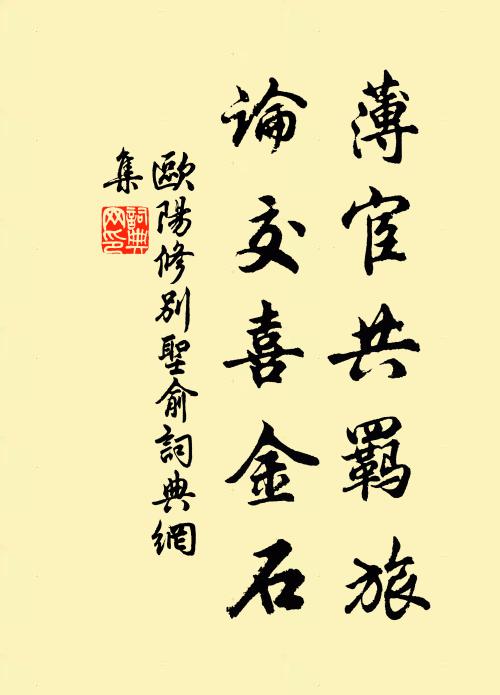 薄宦共羈旅
論交喜金石
歐陽修別聖俞詞典網
集
詞典網印